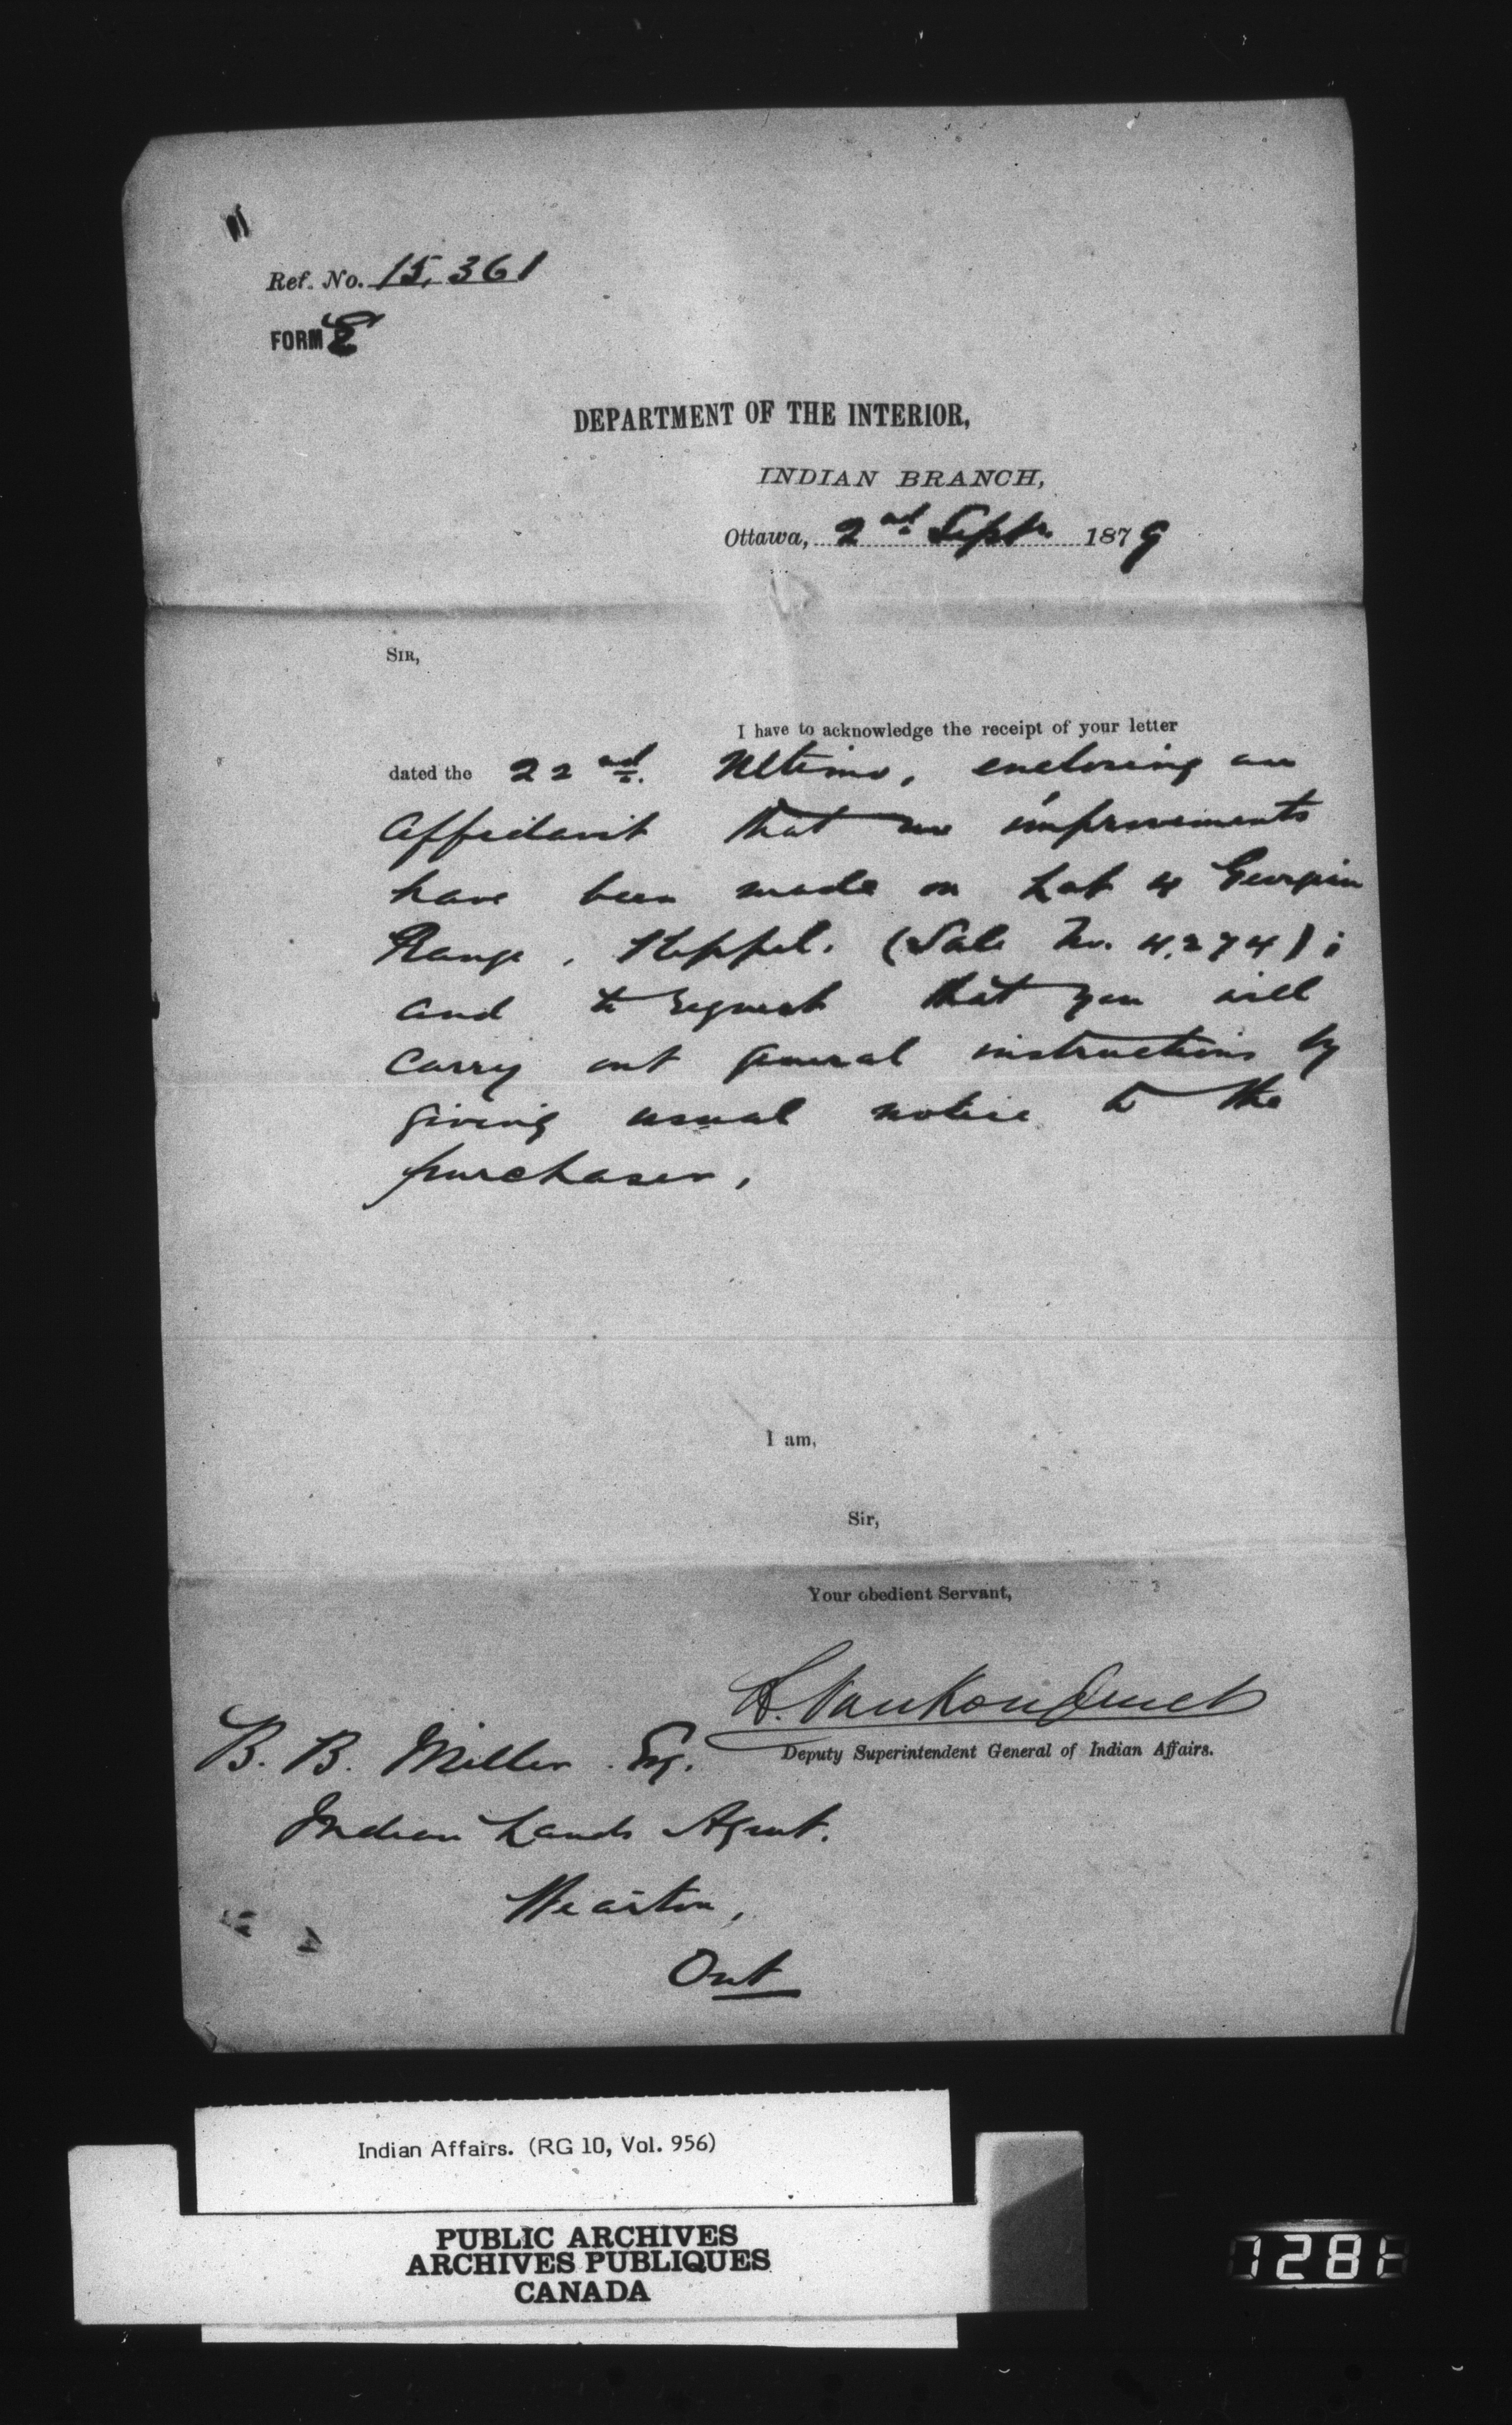 Ref. No. 15,361
FORM E
DEPARTMENT OF THE INTERIOR,
INDIAN BRANCH,
Ottawa, 2nd Septr. 1879
SIR,
I have to acknowledge the receipt of your letter
dated the 22nd. Ultimo, enclosing an
Affidavit that no improvements
have been made on Lot 4 Georgian
Range, Keppel. (Sale No. 4,274);
and to request that you will
carry out general instructions by
giving usual notice to the
purchaser,
I am,
Sir,
Your obedient Servant,
L. Vankoughnet
Deputy Superintendent General of Indian Affairs.
B. B. Miller Esq.
Indian Lands Agent.
Wiarton,
Ont
Indian Affairs. (RG 10, Vol. 956)
PUBLIC ARCHIVES
ARCHIVES PUBLIQUES
CANADA